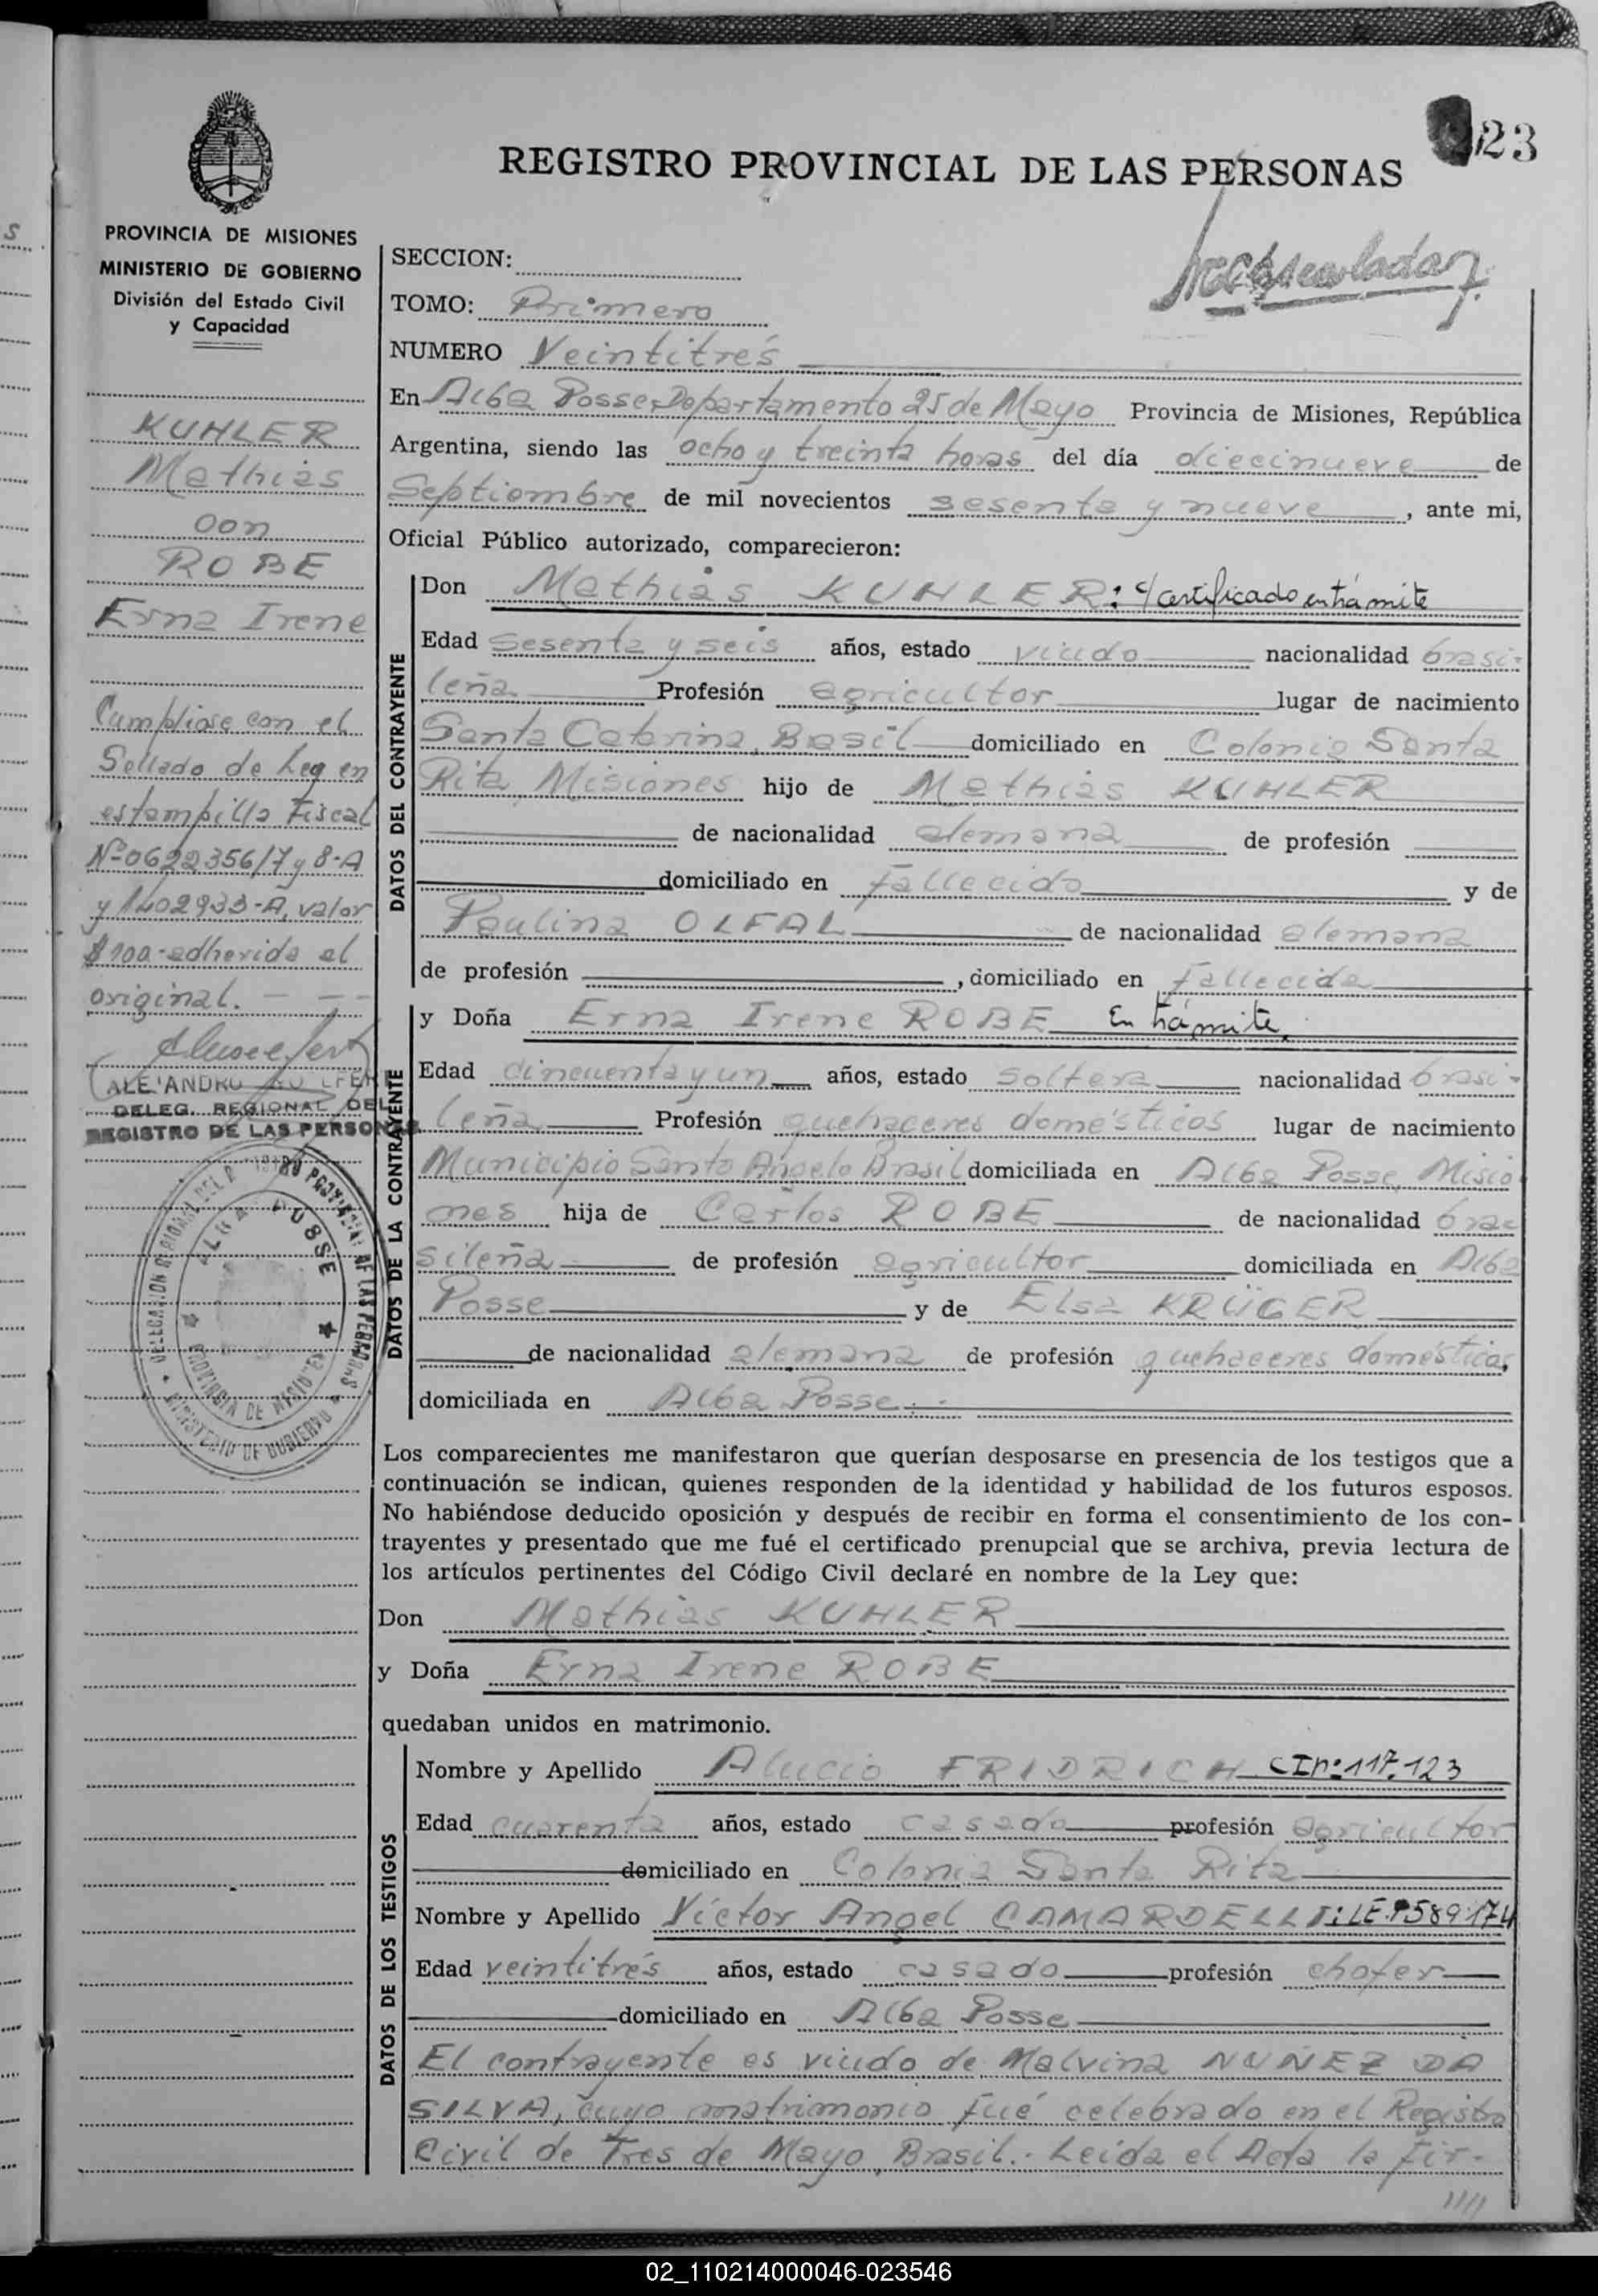 123
REGISTRO PROVINCIAL DE LAS PERSONAS
PROVINCIA DE MISIONES
MINISTERIO DE GOBIERNO
División del Estado Civil
y Capacidad
KUHLER
Mathias
con
ROBE
Erna Irene
Cumpliose con el
Sellado de Ley en
estampilla Fiscal
Nº 0622356/7 y 8-A
y 1402933-A, valor
$ 100-adherida al
original. - - -
DELEG. REGIONAL DEL
REGISTRO DE LAS PERSONAS
ALBA POSSE
PROVINCIA DE MISIONES
MINISTERIO DE GOBIERNO
SECCION:
TOMO: Primero
NUMERO Veintitrés
En Alba Posse, Departamento 25 de Mayo Provincia de Misiones, República
Argentina, siendo las ocho y treinta horas del día diecinueve de
Septiembre de mil novecientos sesenta y nueve, ante mi,
Oficial Público autorizado, comparecieron:
DATOS DEL CONTRAYENTE
Don Mathias KUHLER: c/ certificado en trámite
Edad Sesenta y seis años, estado viudo nacionalidad brasi-
leña Profesión agricultor lugar de nacimiento
Santa Catarina, Brasil domiciliado en Colonia Santa
Rita, Misiones hijo de Mathias KUHLER
de nacionalidad alemana de profesión
domiciliado en fallecido y de
Paulina OLFAL de nacionalidad alemana
de profesión , domiciliado en fallecida
DATOS DE LA CONTRAYENTE
y Doña Erna Irene ROBE En trámite.
Edad cincuenta y un años, estado soltera nacionalidad brasi-
leña Profesión quehaceres domésticos lugar de nacimiento
Municipio Santo Angelo Brasil domiciliada en Alba Posse, Misio
nes hija de Carlos ROBE de nacionalidad bra
sileña de profesión agricultor domiciliada en Alba
Posse y de Elsa KRÜGER
de nacionalidad alemana de profesión quehaceres domésticos,
domiciliada en Alba Posse.-
Los comparecientes me manifestaron que querían desposarse en presencia de los testigos que a
continuación se indican, quienes responden de la identidad y habilidad de los futuros esposos.
No habiéndose deducido oposición y después de recibir en forma el consentimiento de los con-
trayentes y presentado que me fué el certificado prenupcial que se archiva, previa lectura de
los artículos pertinentes del Código Civil declaré en nombre de la Ley que:
Don Mathias KUHLER
y Doña Erna Irene ROBE
quedaban unidos en matrimonio.
DATOS DE LOS TESTIGOS
Nombre y Apellido Alucio FRIDRICH CI nº 117.123
Edad cuarenta años, estado casado profesión agricultor
domiciliado en Colonia Santa Rita
Nombre y Apellido Victor Angel CAMARDELLI:
Edad veintitrés años, estado casado profesión chofer
domiciliado en Alba Posse
El contrayente es viudo de Malvina NUÑEZ DA
SILVA, cuyo matrimonio fué celebrado en el Registro
Civil de Tres de Mayo, Brasil.- Leída el Acta la fir-
////
02_110214000046-023546